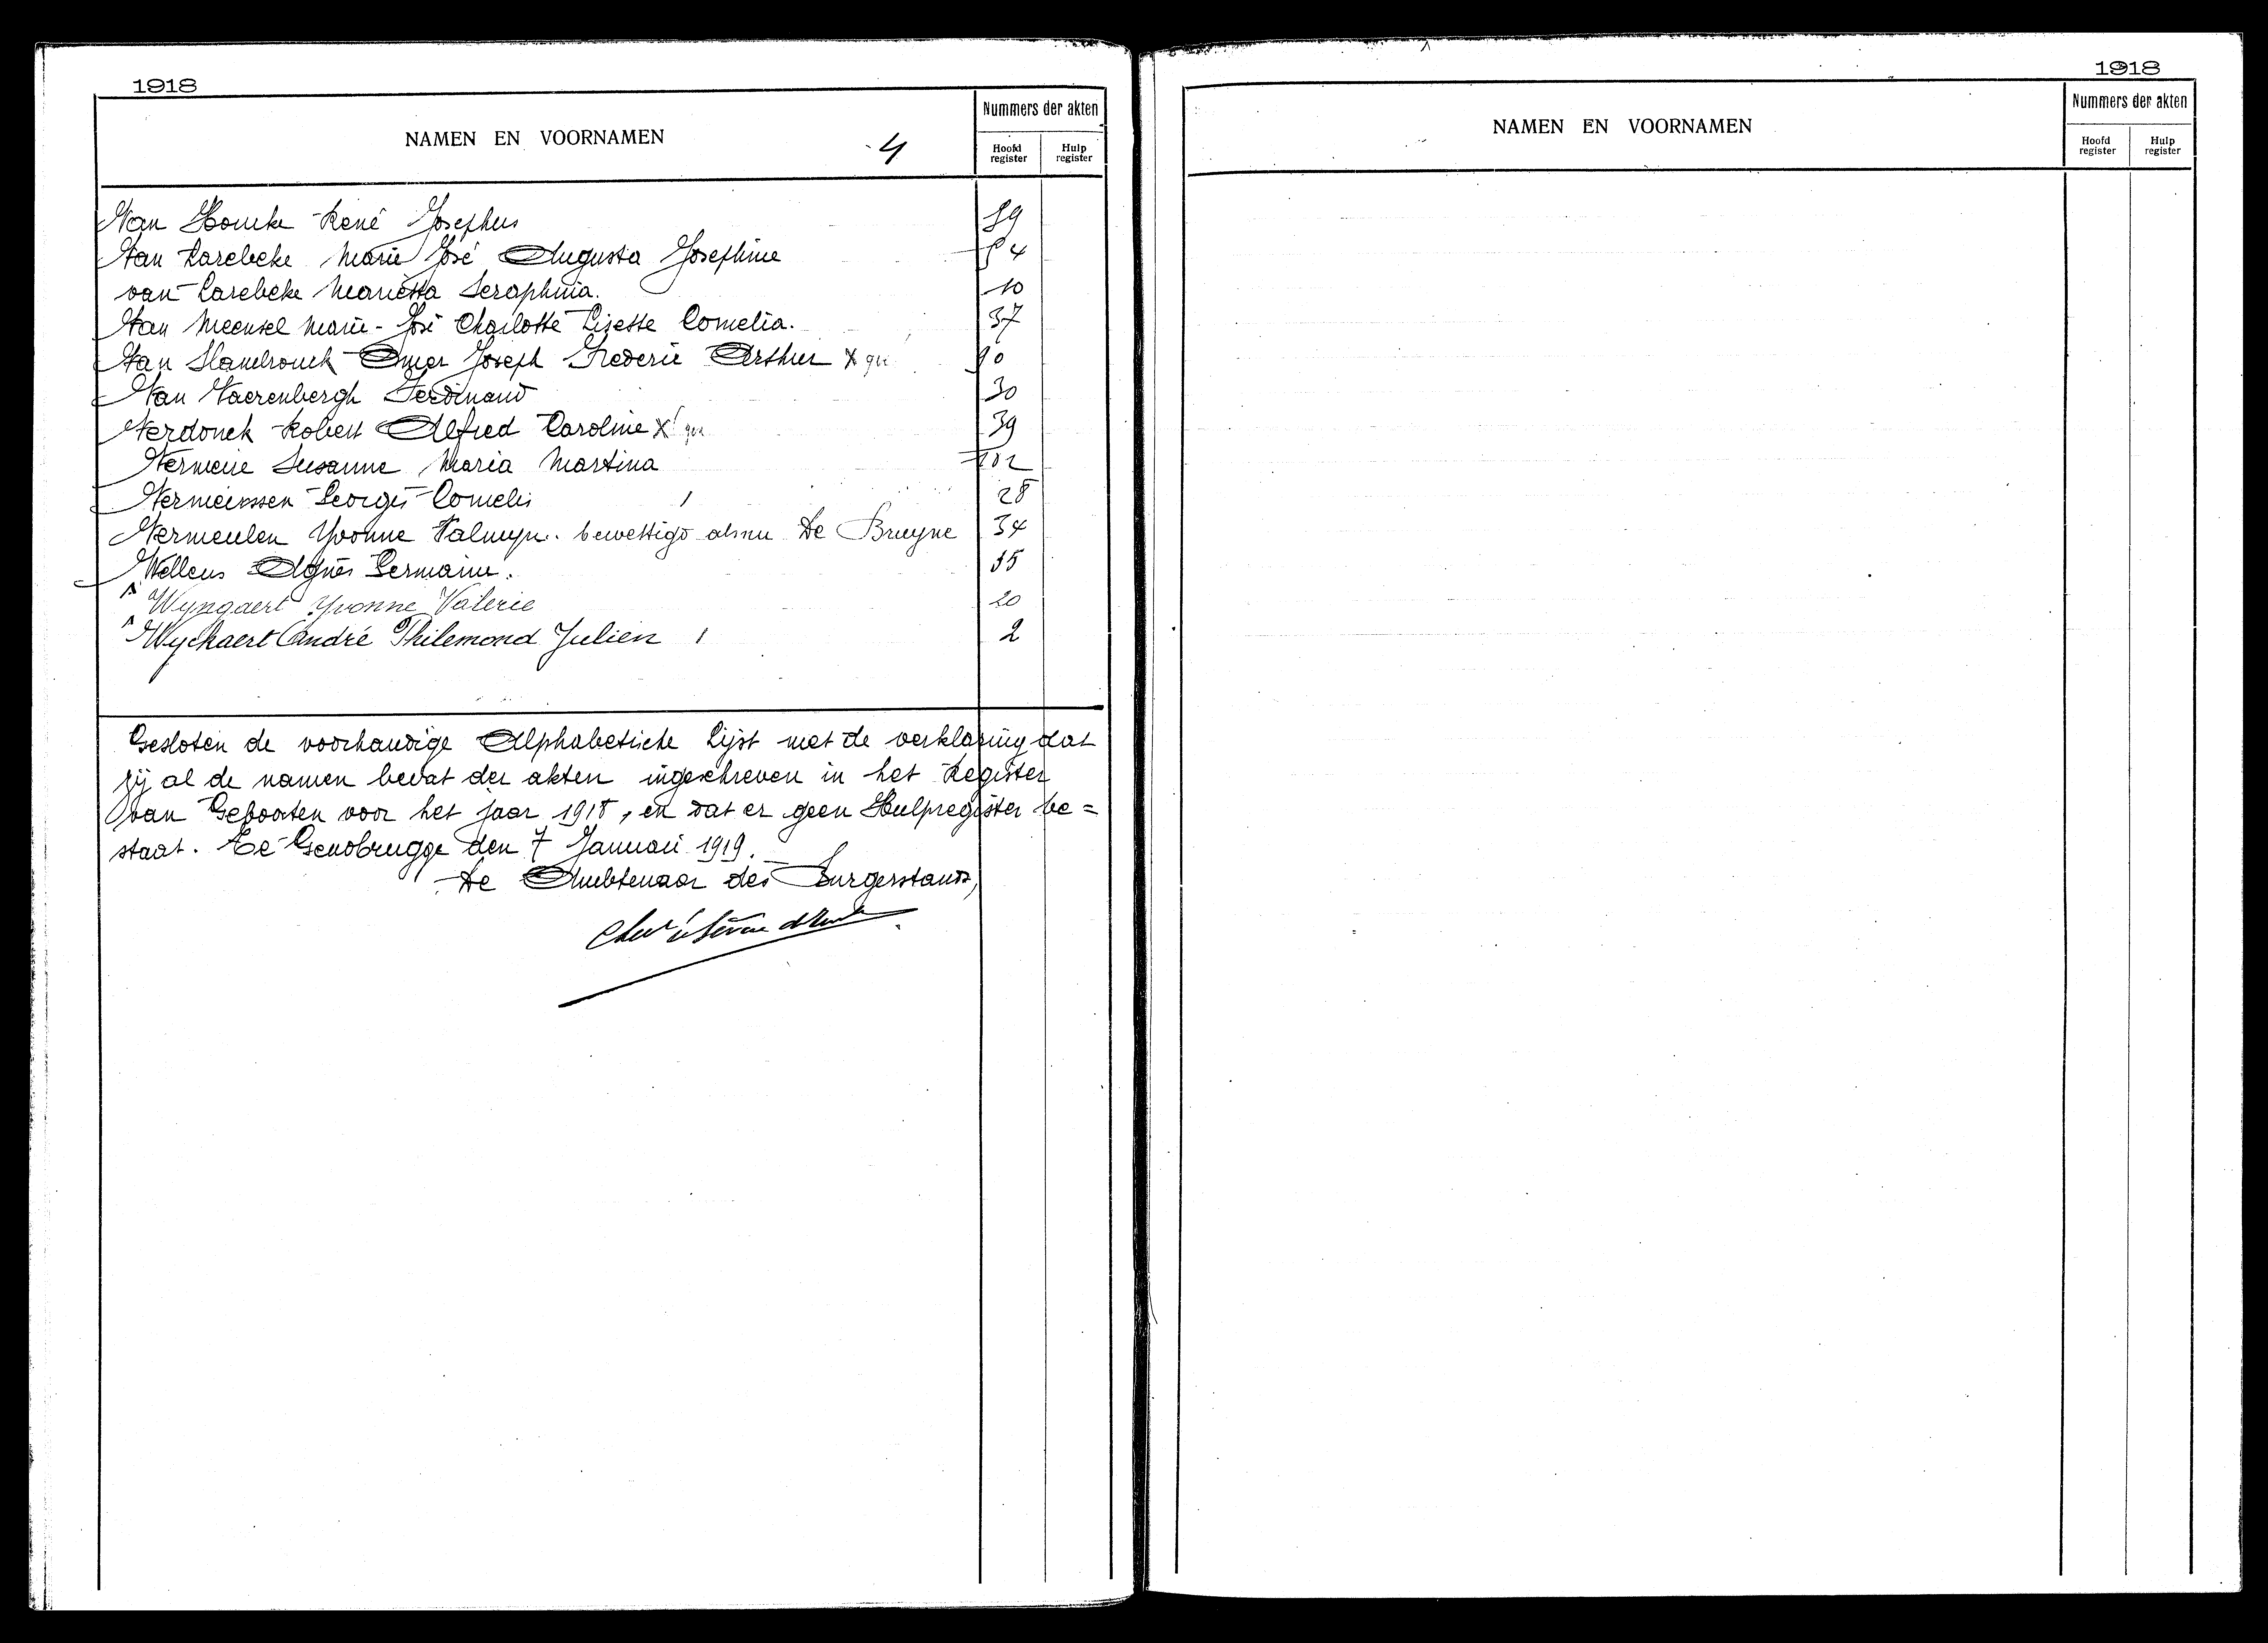 1918
NAMEN EN VOORNAMEN
4
Nummers der akten
Hoofd register
Hulp register
Van Houcke René Josephus 89
Van Larebeke Marie José Augusta Josephine 54
van Larebeke Marietta Seraphina. 10
Van Meensel Marie-José Charlotte Lisette Cornelia. 37
Van Slambrouck Omer Joseph Frederic Arthur X 90
Van Vaerenbergh Ferdinand 30
Verdonck Robert Alfred Caroline X 39
Vermeire Susanne Maria Martina 102
Vermeirssen Georges Cornelis 28
Vermeulen Yvonne Palmyr. bewettigd als nu De Bruyne 34
Wellens Agnès Germaine. 55
Wyngaert Yvonne Valerie 20
Wyckaert André Philemond Julien 2
Gesloten de voorhandige Alphabetische Lijst met de verklaring dat
zij al de namen bevat der akten ingeschreven in het Register
van Geboorten voor het jaar 1918, en dat er geen Hulpregister be=
staat. Te Gendbrugge den 7 Januari 1919.
De Ambtenaar des Burgerstands,
1918
NAMEN EN VOORNAMEN
Nummers der akten
Hoofd register
Hulp register